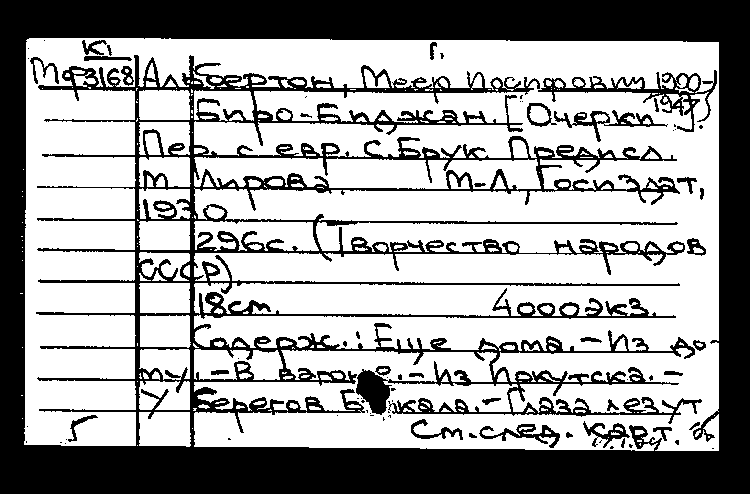 К1 Г.
МФ3168 Альбертон, Меер Иосифович 1900-
Биро-Биджан. [Очерки]. 1947)
Пер. с евр. С. Брук. Предисл.
М. Лирова. М-Л., Госиздат,
1930
296с. (Творчество народов
СССР).
18см. 4000экз.
Содерж.: Еще дома. - Из до-
му. - В вагоне. - Из Иркутска. -
У берегов Байкала. - Глаза лезут
См. след. карт.